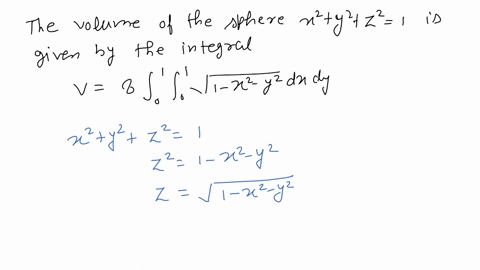 The volume of the sphere x²+y²+z²=1 is
given by the integral
V = 8 ∫₀¹ ∫₀¹ √(1-x² y²) dx dy
x²+y²+ z² = 1
z² = 1-x²-y²
z = √(1-x²-y²)